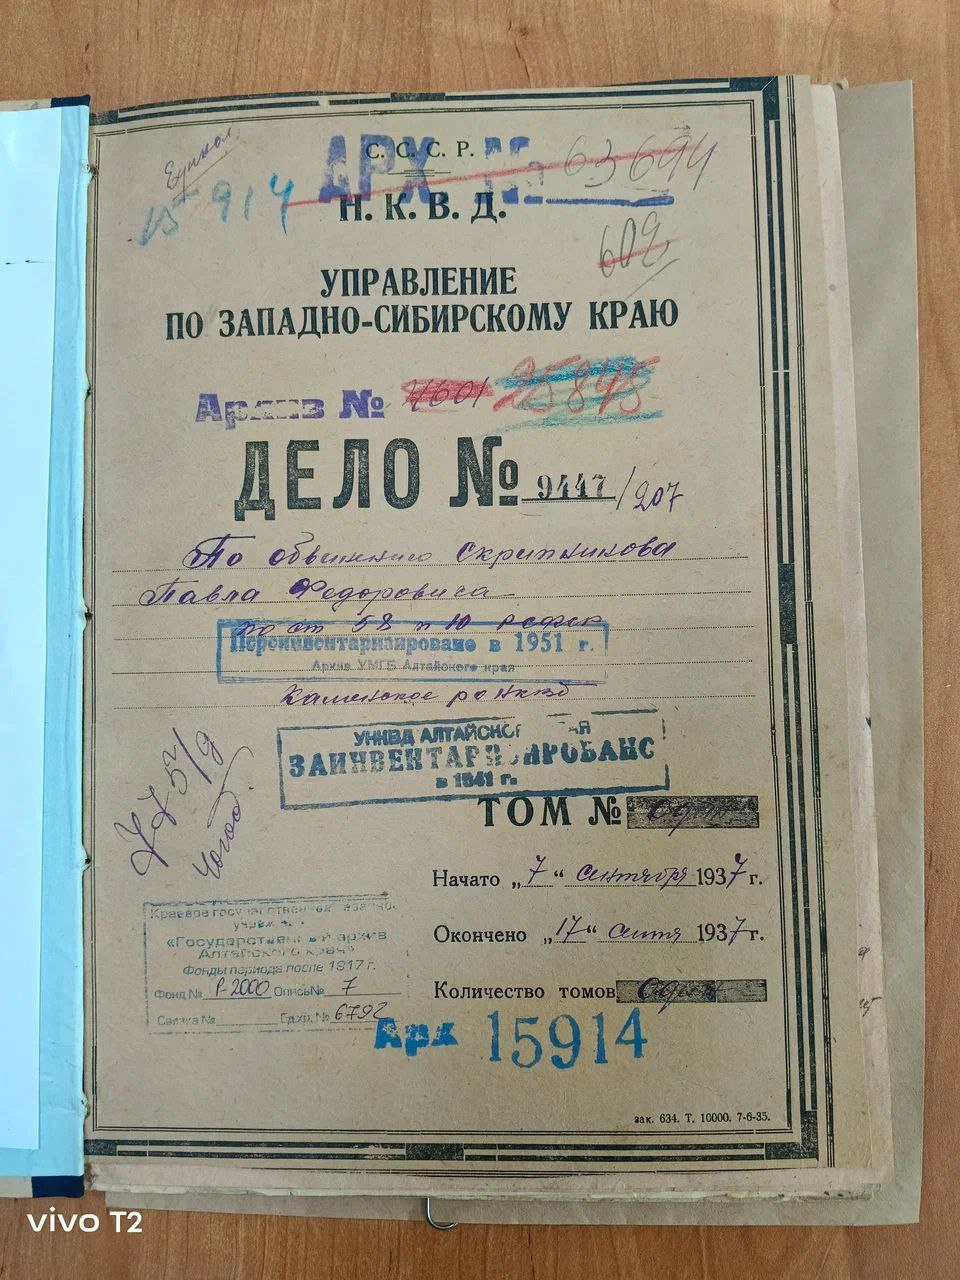 С. С. С. Р.
АРХ № 63694
Н. К. В. Д.
15914
602
УПРАВЛЕНИЕ
ПО ЗАПАДНО-СИБИРСКОМУ КРАЮ
Архив № 4601 25845
ДЕЛО № 9447/207
По обвинению Скрипникова
Павла Федоровича
по ст 58 п 10
Переинвентаризировано в 1951 г.
Архив УМГБ Алтайского края
Каменское
УНКВД АЛТАЙСКОГО КРАЯ
ЗАИНВЕНТАРИЗИРОВАНО
в 1941 г.
ТОМ № один
Начато „7“ сентября 1937 г.
Окончено „17“ сентя 1937 г.
Количество томов один
Краевое государственное казенное
учреждение
«Государственный архив
Алтайского края»
Фонды периода после 1917 г.
Фонд № Р-2000 Опись № 7
Связка № Ед.хр. № 6792
Арх 15914
зак. 634. Т. 10000. 7-6-35.
vivo T2